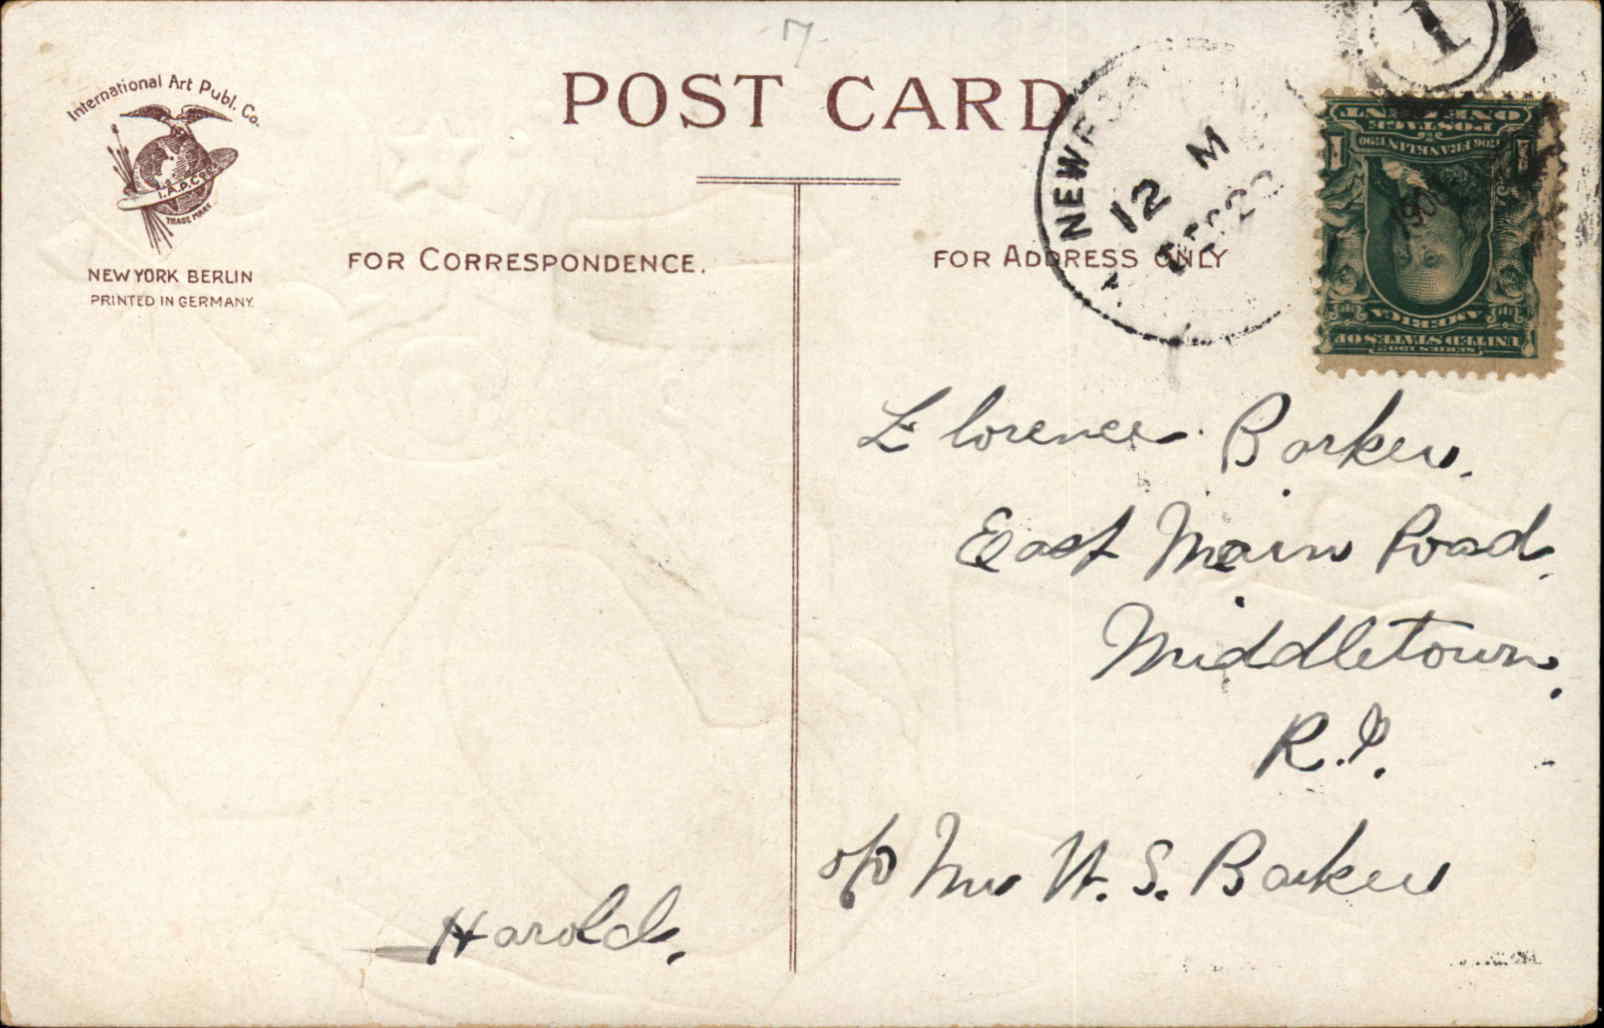 International Art Publ. Co.
I.A.P.C.
TRADE MARK
NEW YORK BERLIN
PRINTED IN GERMANY.
POST CARD
FOR CORRESPONDENCE.
FOR ADDRESS ONLY
12 M
1
ONE CENT
POSTAGE
1706 FRANKLIN 1790
AMERICA
UNITED STATES OF
SERIES 1902
Florence Barker.
East Main Road,
Middletown,
R.I.
c/o Mr W. S. Barker
Harold.